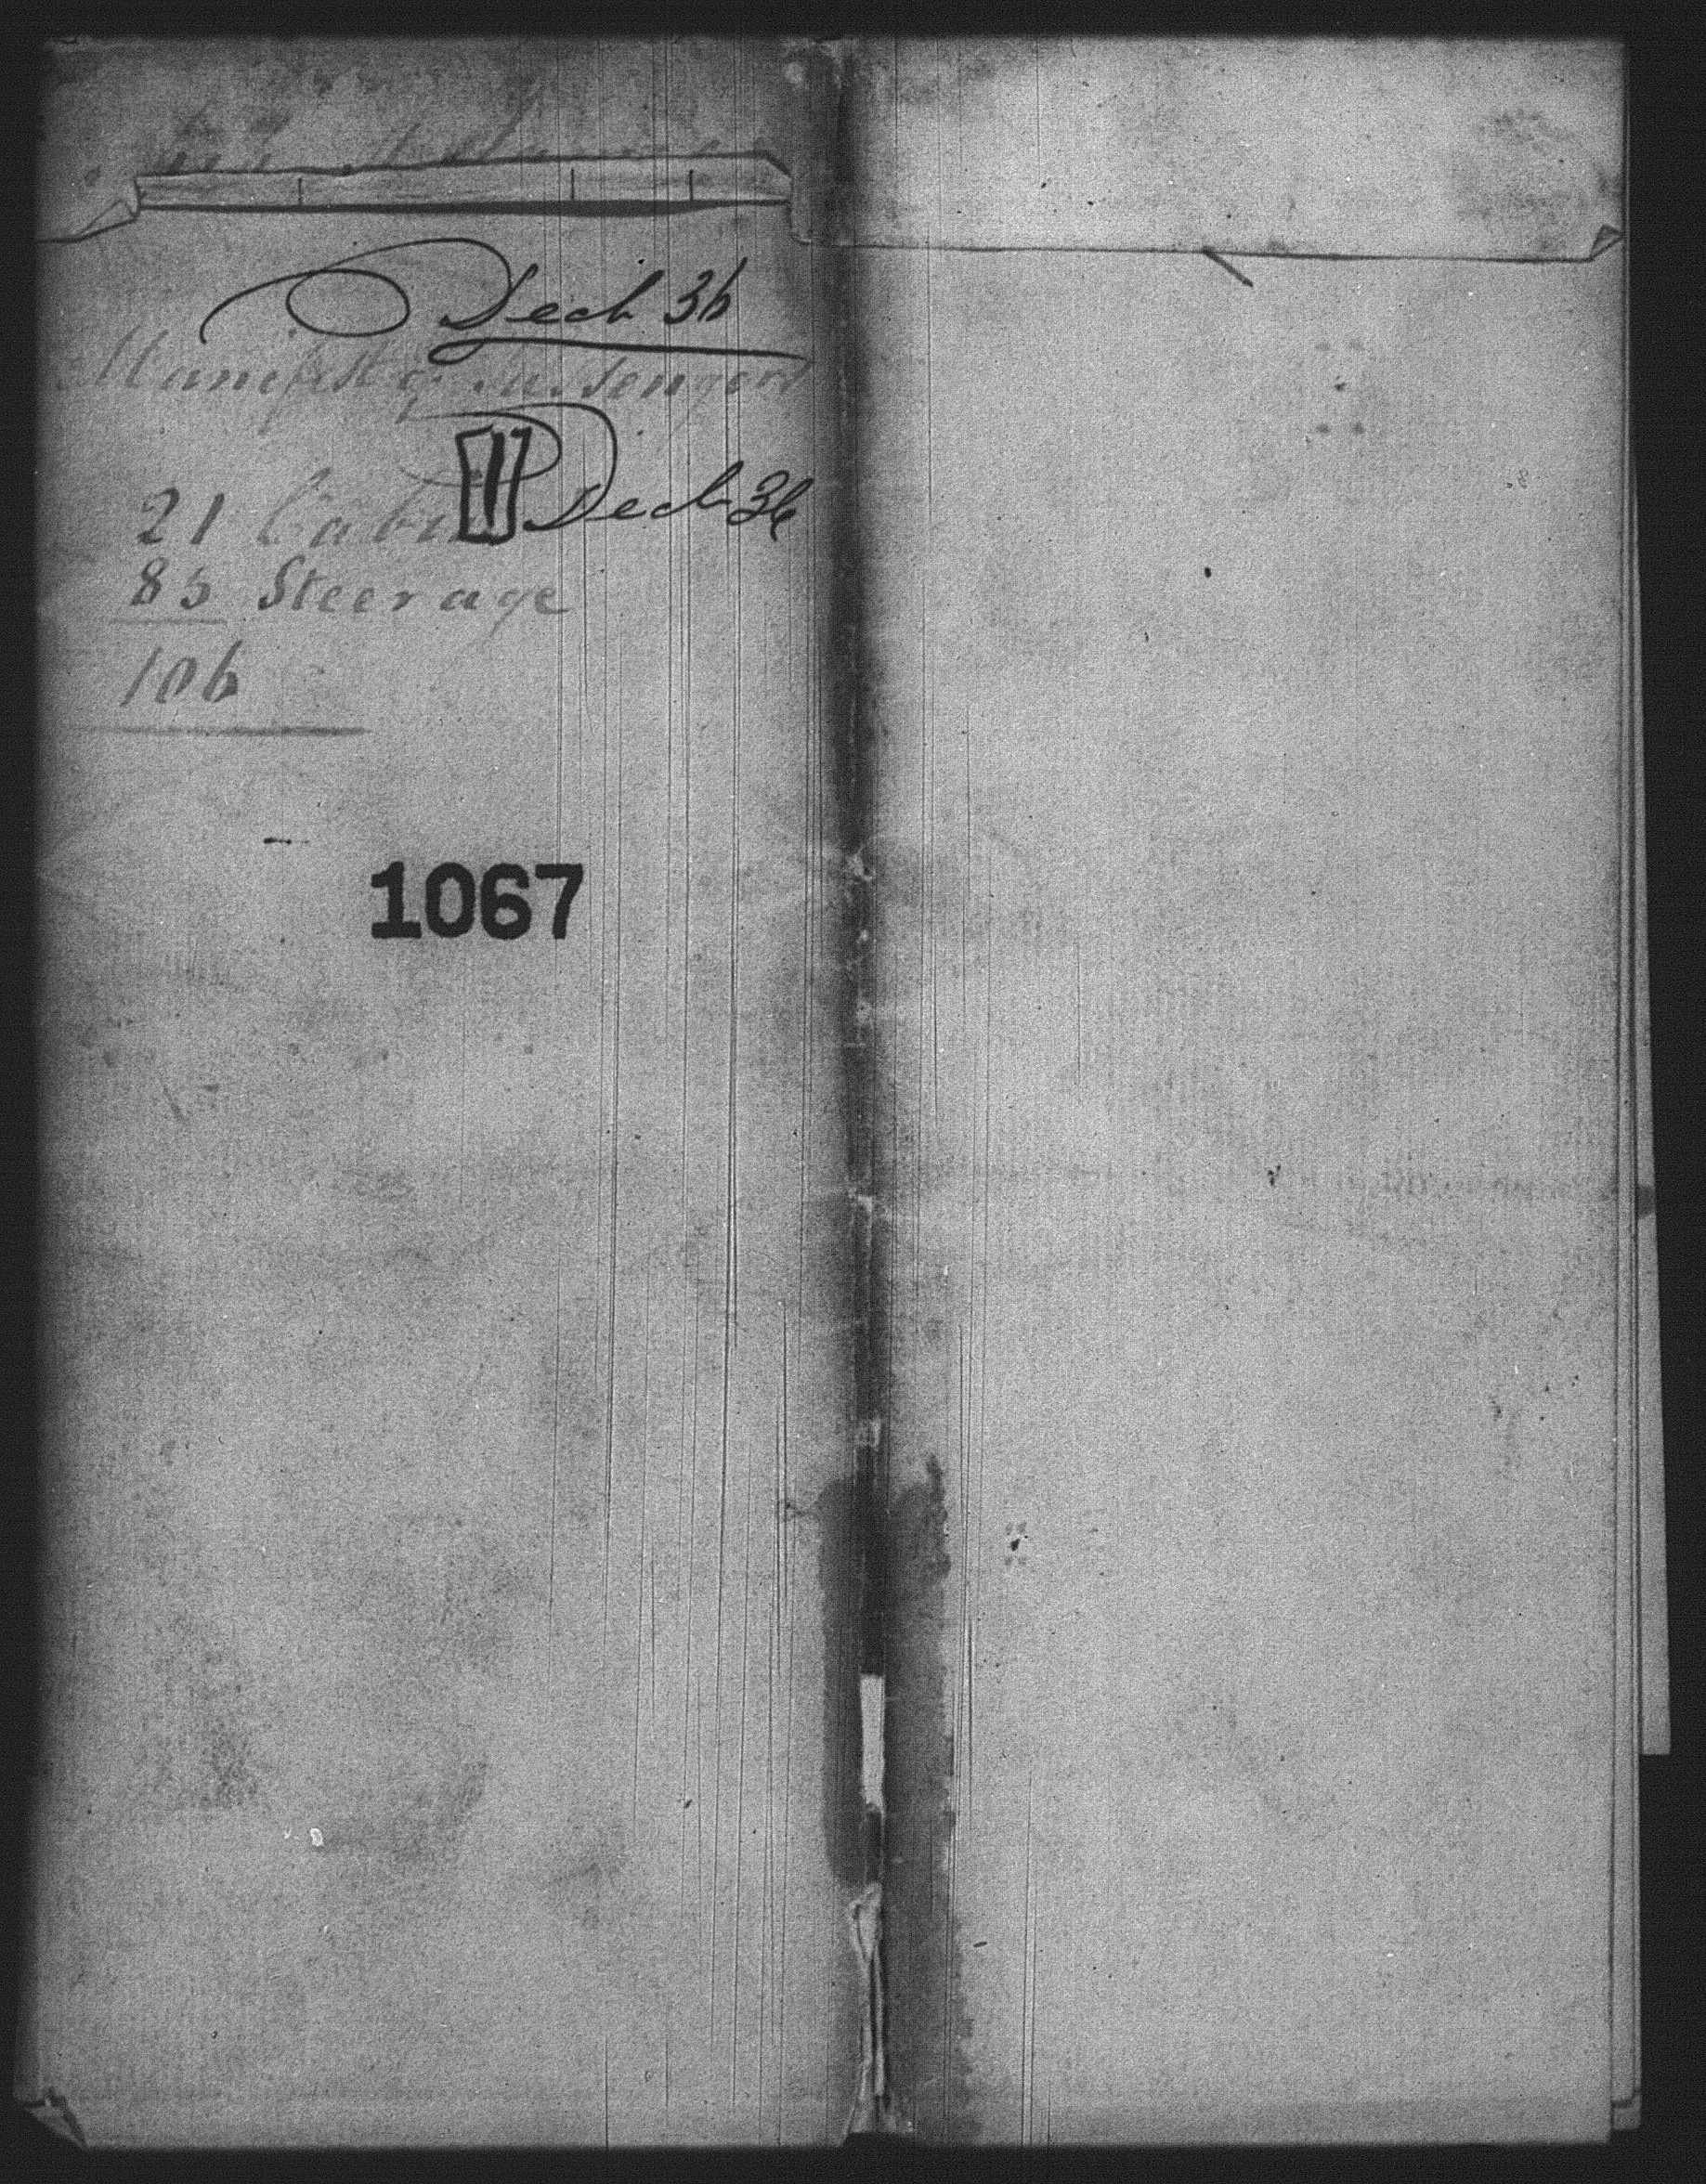 Dech 36
Manifest of Passengers
Dech 36
21 Cabin
85 Steerage
106
1067